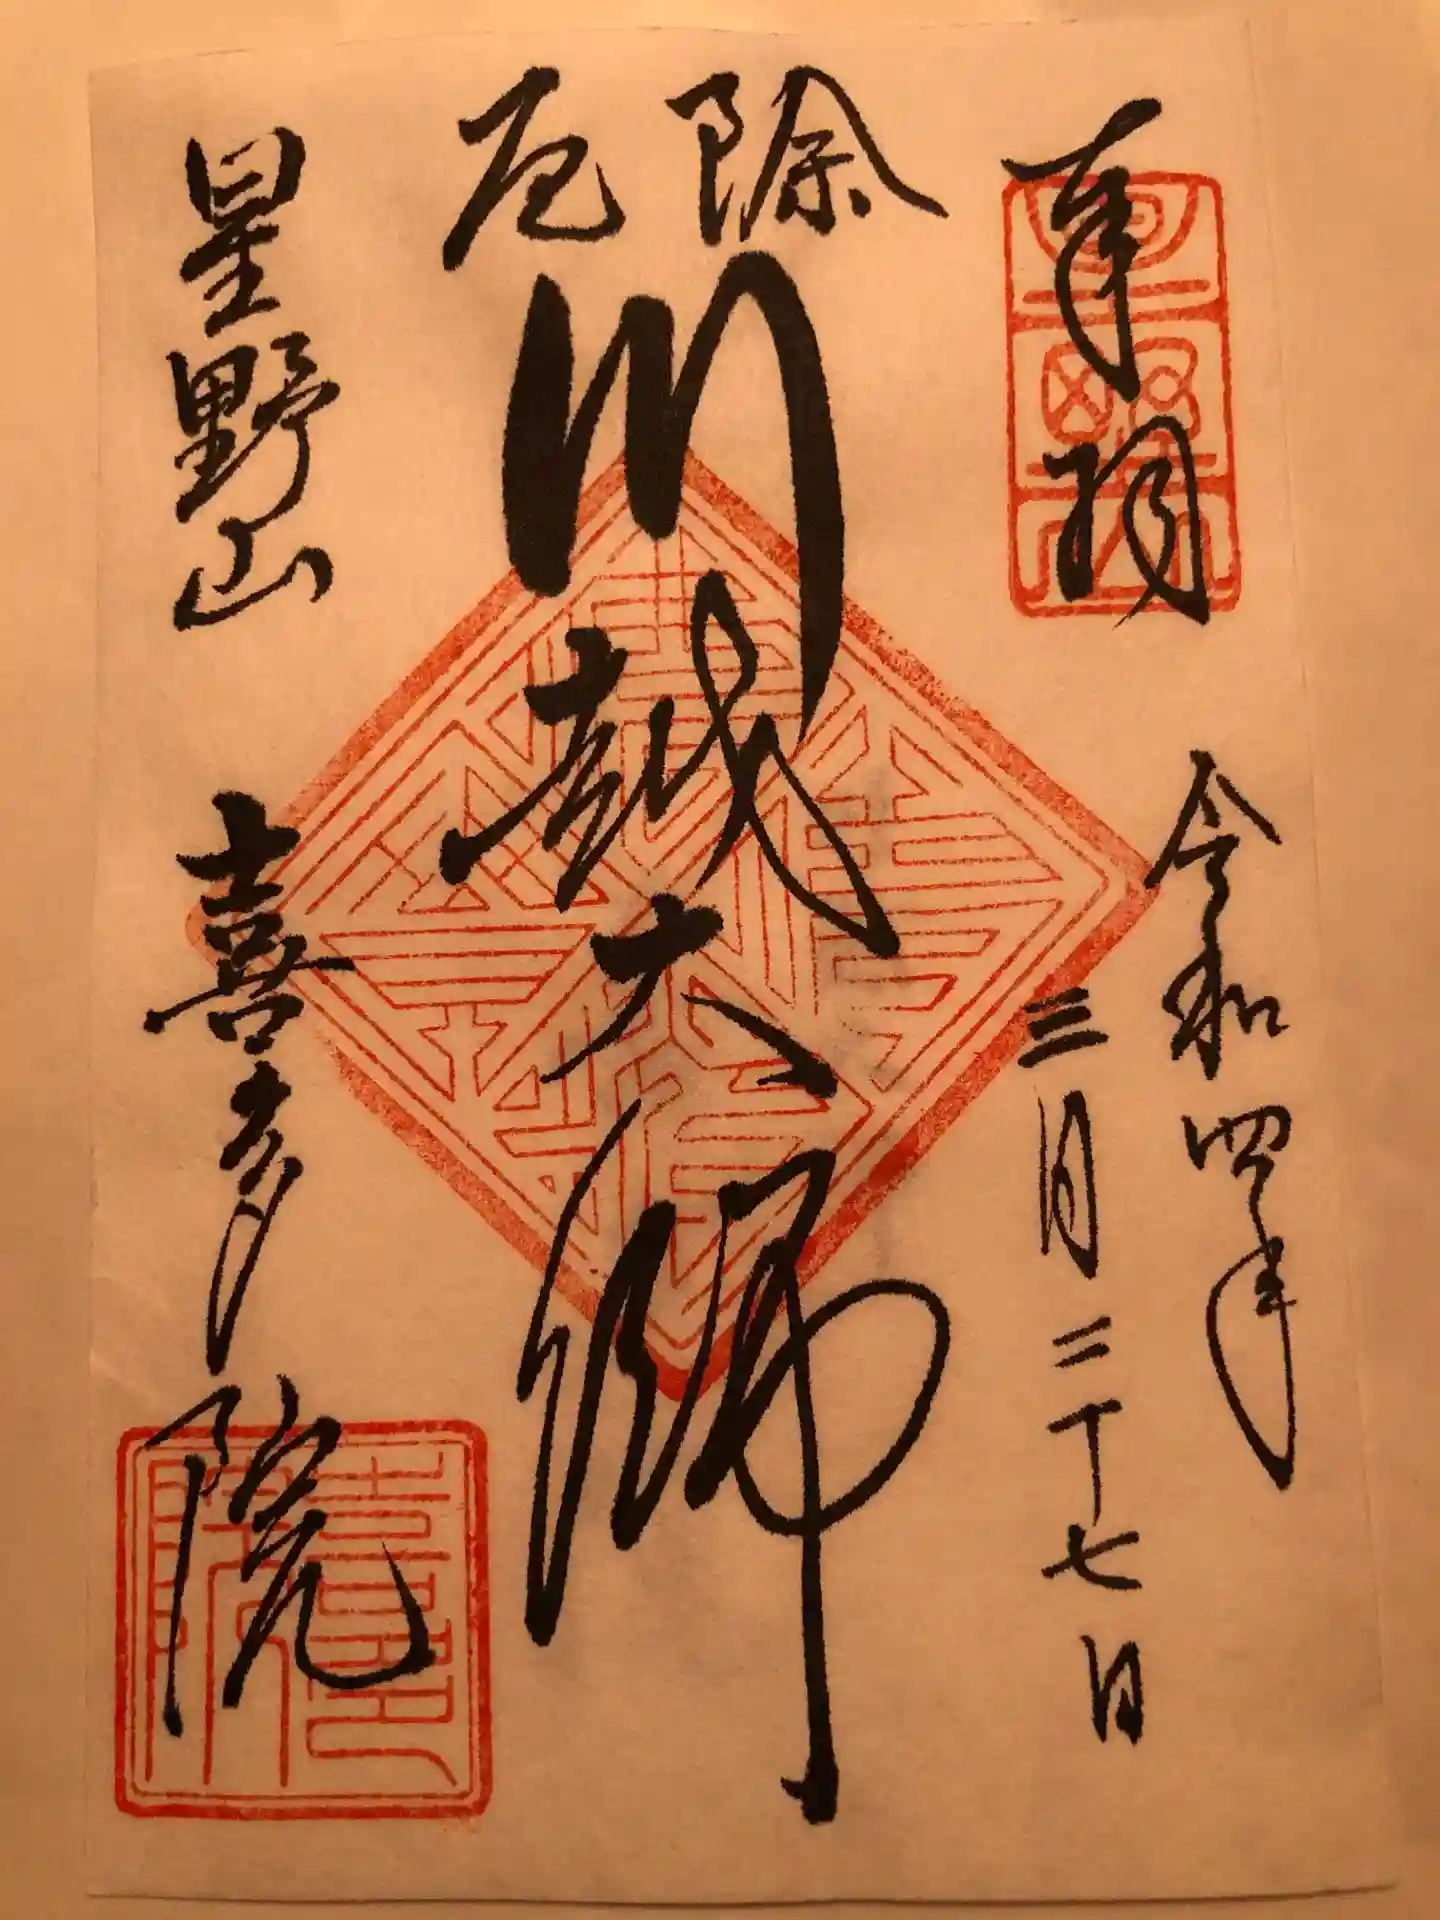 奉拝
令和四年
三月二十七日
厄除
川越大師
星野山
喜多院
喜多院